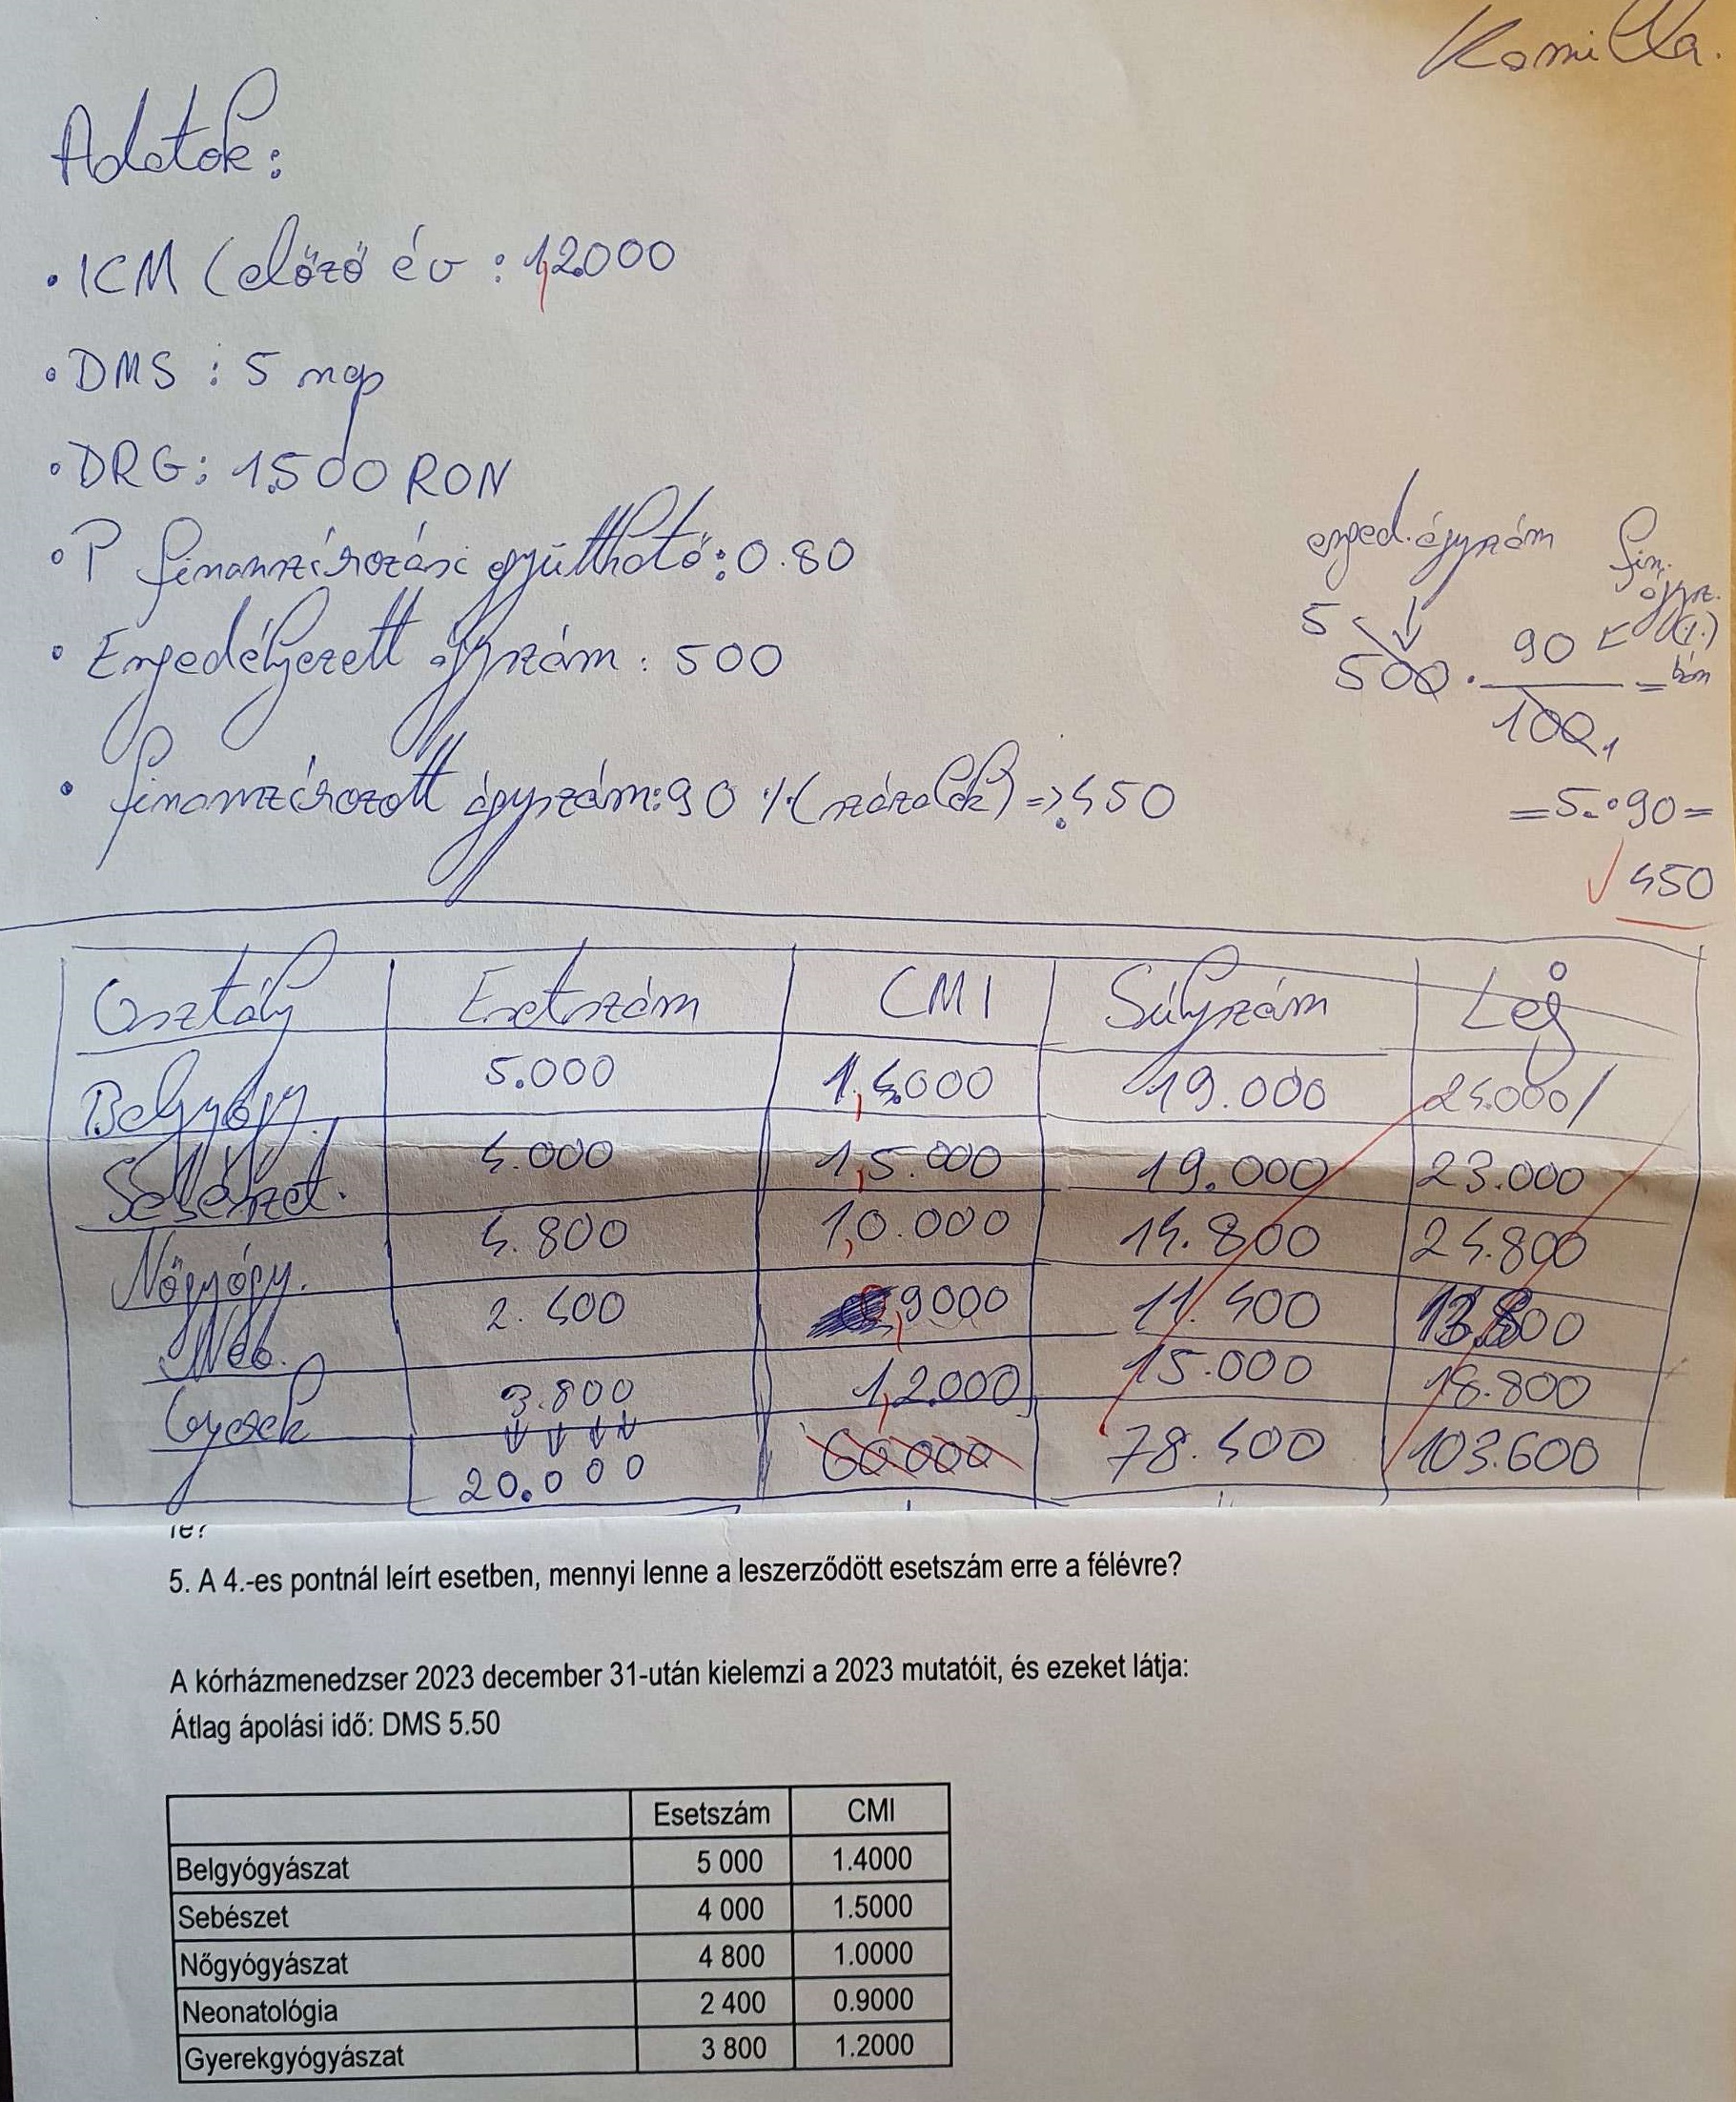 Kamilla.
Adatok:
• ICM (előző év : 1,2000
• DMS : 5 nap
• DRG: 1.500 RON
• P finanszírozási együttható: 0.80
• Engedélyezett ágyszám : 500
• finanszírozott ágyszám: 90 % (százalék) => 450
enged. ágyszám fin. ágysz. (%) ban
5
500 · 90 =
100 1
= 5 · 90 =
450
Osztály Esetszám CMI Súlyszám Lej
Belgyógy. 5.000 1,4.000 19.000 24.000
Sebészet. 4.000 1,5.000 19.000 23.000
Nőgyógy. 4.800 1,0.000 14.800 24.800
Neo. 2.400 0,9000 11.400 13.800
Gyerek 3.800 1,2.000 15.000 18.800
20.000 60.000 78.400 103.600
5. A 4.-es pontnál leírt esetben, mennyi lenne a leszerződött esetszám erre a félévre?
A kórházmenedzser 2023 december 31-után kielemzi a 2023 mutatóit, és ezeket látja:
Átlag ápolási idő: DMS 5.50
Esetszám CMI
Belgyógyászat 5 000 1.4000
Sebészet 4 000 1.5000
Nőgyógyászat 4 800 1.0000
Neonatológia 2 400 0.9000
Gyerekgyógyászat 3 800 1.2000